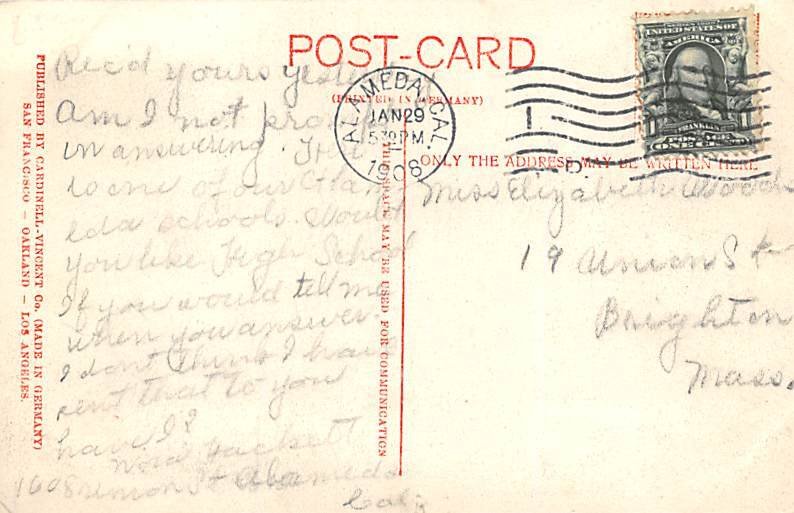 POST-CARD
(PRINTED IN GERMANY)
ONLY THE ADDRESS MAY BE WRITTEN HERE
THIS SPACE MAY BE USED FOR COMMUNICATION
PUBLISHED BY CARDINELL-VINCENT CO. (MADE IN GERMANY)
SAN FRANCISCO — OAKLAND — LOS ANGELES.
ALAMEDA, CAL.
JAN 29
530 PM
1908
UNITED STATES OF
AMERICA
FRANKLIN
1 ONE CENT
Rec'd yours yesterday
Am I not prompt
in answering. This
is one of our Alam-
eda schools. Would
you like High School
If you would tell me
when you answer.
I dont think I have
sent that to you
have I?
Hackett
1608 St Alameda
Cali
Miss Elizabeth Woods
19 Union St
Brighton
Mass.